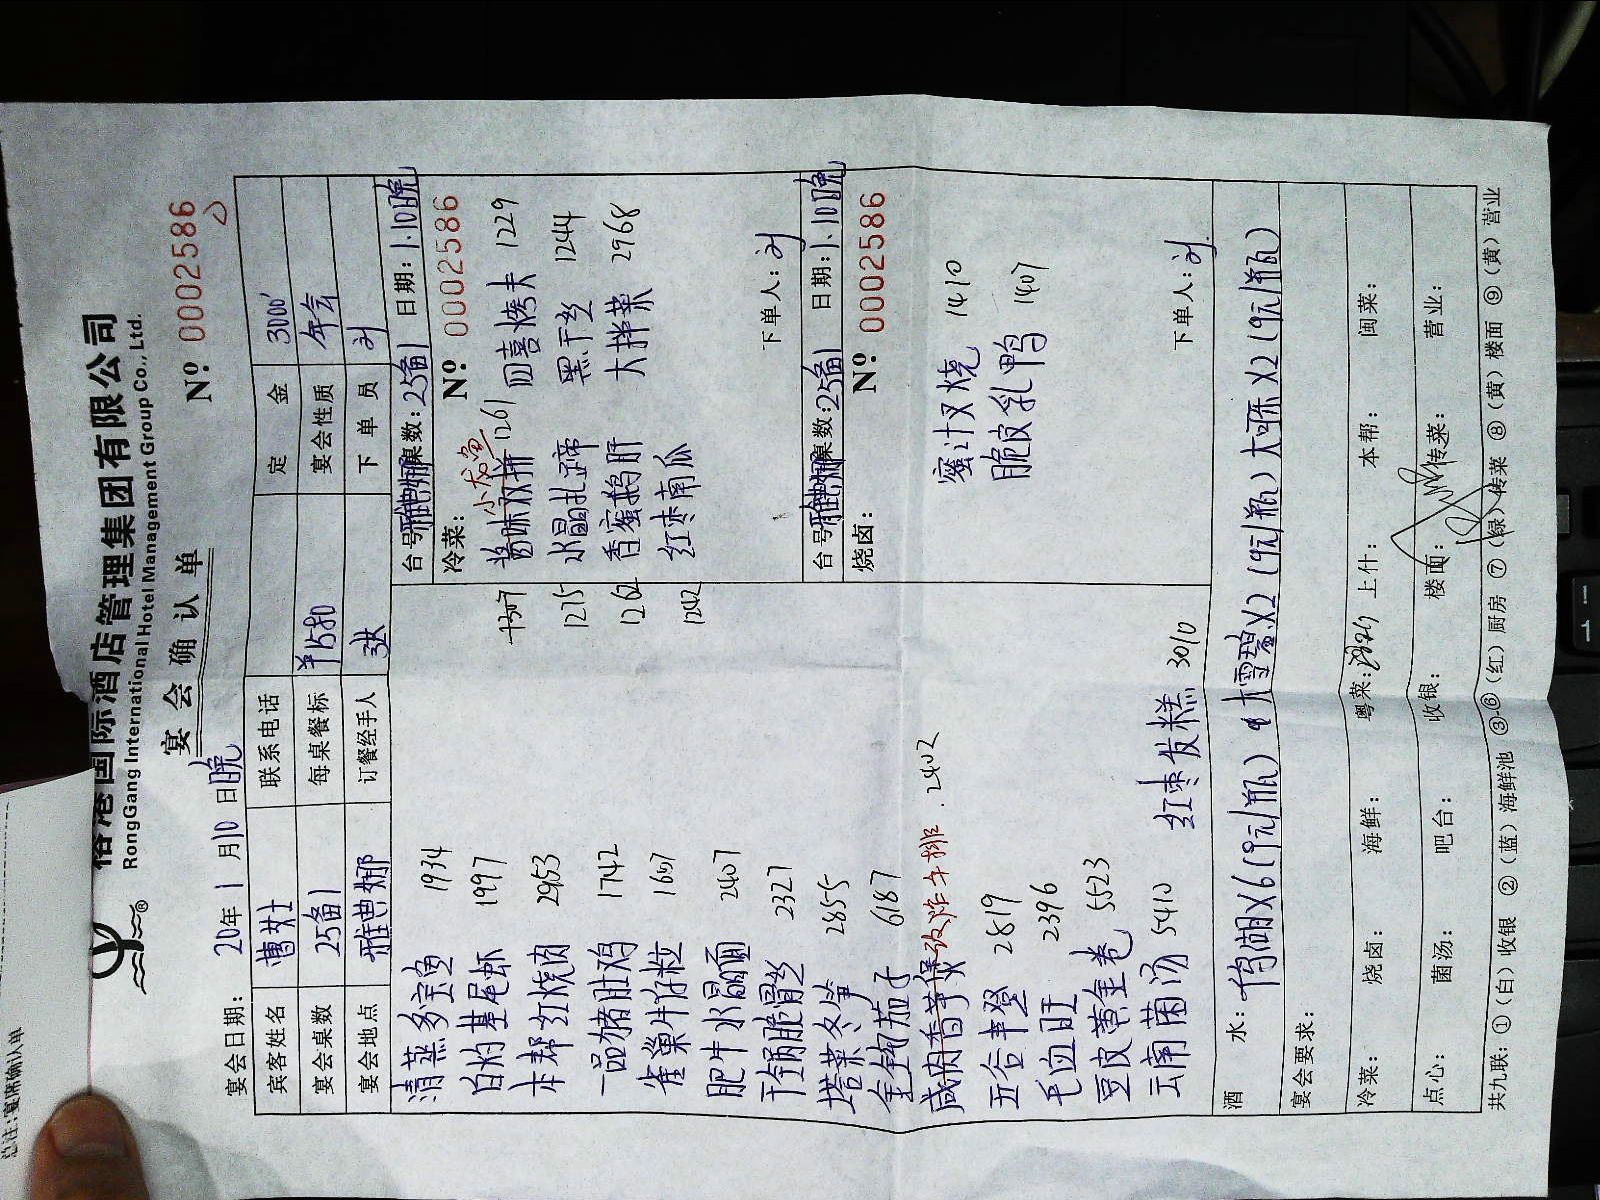 总注:宴席确认单
榕港国际酒店管理集团有限公司
RongGang International Hotel Management Group Co., Ltd.
宴会确认单
宴会日期: 20年 1 月10 日晚
Nº 0002586
宾客姓名 曹女士 联系电话 定金 3000
宴会桌数 25备1 每桌餐标 宴会性质 年会
宴会地点 雅典娜 订餐经手人 下单员 刘
清蒸多宝鱼 1934
白灼基尾虾 1997
本帮红烧肉 2953
一品猪肚鸡 1742
雀巢牛仔粒 1607
肥牛水晶面 2407
干锅脆骨丝 2327
塔菜冬笋 2855
金钩茄子 6187
咸肉香芋煲 改炸牛排 2402
五谷丰登 2819
毛血旺 2396
豆皮黄金卷 5523
云南菌汤 5410
红枣发糕 3010
台号 雅典娜 桌数: 25备1 日期: 1.10晚
冷菜: Nº 0002586
小龙鱼
酱味双拼 1261 四喜烤夫 1229
水晶扎蹄 1215 黑干丝 1244
香蜜鹅肝 1262 大拌菜 2968
红枣南瓜 1242
下单人: 刘
台号 雅典娜 桌数: 25备1 日期: 1.10晚
烧卤: Nº 0002586
蜜汁叉烧 1410
脆皮乳鸭 1407
下单人: 刘
酒水: X6(9元/瓶) 雪碧X2(9元/瓶) 大可乐X2(9元/瓶)
宴会要求:
冷菜: 烧卤: 海鲜: 粤菜: 上什: 本帮: 闽菜:
点心: 菌汤: 吧台: 收银: 楼面: 传菜: 营业:
共九联: ①(白)收银 ②(蓝)海鲜池 ③-⑥(红)厨房 ⑦(绿)传菜 ⑧(黄)楼面 ⑨(黄)营业